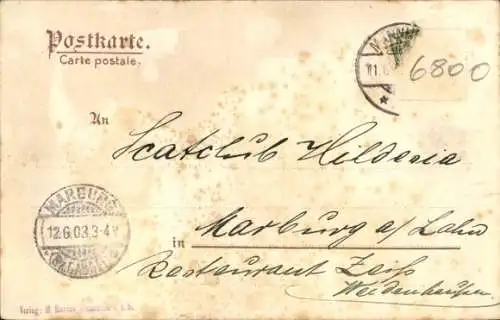 Postkarte.
Carte postale.
6800
An
Scatclub Hilderia
MARBURG
12.6.03.3-4N
Marburg a/Lahn
in
Restaurant Zeiß
Weidenhausen
Verlag: